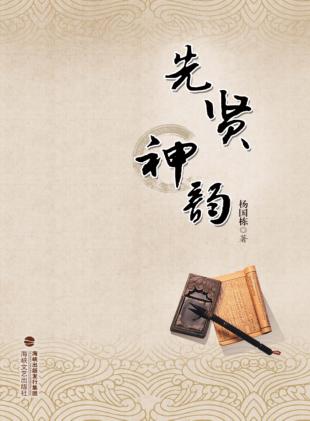 先贤
神韵
杨国栋
◎著
海峡出版发行集团
海峡文艺出版社